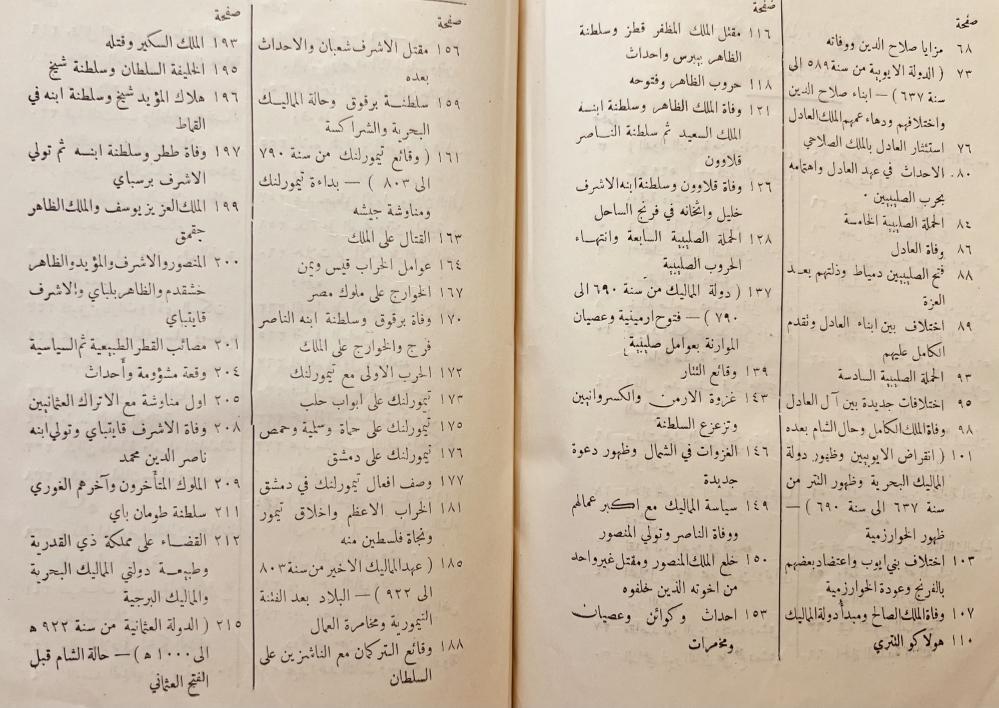 صفحة
٦٨ مزايا صلاح الدين ووفاته
٧٣ ( الدولة الايوبية من سنة ٥٨٩ الى
سنة ٦٣٧ ) — ابناء صلاح الدين
واختلافهم ودهاء عمهم الملك العادل
٧٦ استئثار العادل بالملك الصلاحي
٨٠ الاحداث في عهد العادل واهتمامه
بحرب الصليبيين .
٨٤ الحملة الصليبية الخامسة
٨٦ وفاة العادل
٨٨ فتح الصليبيين دمياط وذلتهم بعد
العزة
٨٩ اختلاف بين ابناء العادل وتقدم
الكامل عليهم
٩٣ الحملة الصليبية السادسة
٩٥ اختلافات جديدة بين آل العادل
٩٨ وفاة الملك الكامل وحال الشام بعده
١٠١ ( انقراض الايوبيين وظهور دولة
المماليك البحرية وظهور التتر من
سنة ٦٣٧ الى سنة ٦٩٠ ) —
ظهور الخوارزمية
١٠٣ اختلاف بني ايوب واعتضاد بعضهم
بالفرنج وعودة الخوارزمية
١٠٧ وفاة الملك الصالح ومبدأ دولة المماليك
١١٠ هولاكو التتري
صفحة
١١٦ مقتل الملك المظفر قطز وسلطنة
الظاهر بيبرس واحداث
١١٨ حروب الظاهر وفتوحه
١٢١ وفاة الملك الظاهر وسلطنة ابنه
الملك السعيد ثم سلطنة الناصر
قلاوون
١٢٦ وفاة قلاوون وسلطنة ابنه الاشرف
خليل واثخانه في فرنج الساحل
١٢٨ الحملة الصليبية السابعة وانتهاء
الحروب الصليبية
١٣٧ ( دولة المماليك من سنة ٦٩٠ الى
٧٩٠ ) — فتوح ارمينية وعصيان
الموارنة بعوامل صليبية
١٣٩ وقائع التتار
١٤٣ غزوة الارمن والكسروانيين
وتزعزع السلطنة
١٤٦ الغزوات في الشمال وظهور دعوة
جديدة
١٤٩ سياسة المماليك مع اكبر عمالهم
ووفاة الناصر وتولي المنصور
١٥٠ خلع الملك المنصور ومقتل غير واحد
من اخوته الذين خلفوه
١٥٣ احداث وكوائن وعصيان
ومخمرات
صفحة
١٥٦ مقتل الاشرف شعبان والاحداث
بعده
١٥٩ سلطنة برقوق وحالة المماليك
البحرية والشراكسة
١٦١ ( وقائع تيمورلنك من سنة ٧٩٠
الى ٨٠٣ ) — بداءة تيمورلنك
ومناوشة جيشه
١٦٣ القتال على الملك
١٦٤ عوامل الخراب قيس ويمن
١٦٧ الخوارج على ملوك مصر
١٧٠ وفاة برقوق وسلطنة ابنه الناصر
فرج والخوارج على الملك
١٧٢ الحرب الاولى مع تيمورلنك
١٧٣ تيمورلنك على ابواب حلب
١٧٥ تيمورلنك على حماة وسلمية وحمص
١٧٦ تيمورلنك على دمشق
١٧٧ وصف افعال تيمورلنك في دمشق
١٨١ الخراب الاعظم واخلاق تيمور
ونجاة فلسطين منه
١٨٥ ( عهد المماليك الاخير من سنة ٨٠٣
الى ٩٢٢ ) — البلاد بعد الفتنة
التيمورية ومخامرة العمال
١٨٨ وقائع التركمان مع الناشزين على
السلطان
صفحة
١٩٣ الملك السكير وقتله
١٩٥ الخليفة السلطان وسلطنة شيخ
١٩٦ هلاك المؤيد شيخ وسلطنة ابنه في
القماط
١٩٧ وفاة ططر وسلطنة ابنه ثم تولي
الاشرف برسباي
١٩٩ الملك العزيز يوسف والملك الظاهر
جقمق
٢٠٠ المنصور والاشرف والمؤيد والظاهر
خشقدم والظاهر بلباي والاشرف
قايتباي
٢٠١ مصائب القطر الطبيعية ثم السياسية
٢٠٤ وقعة مشؤومة وأحداث
٢٠٥ اول مناوشة مع الاتراك العثمانيين
٢٠٨ وفاة الاشرف قايتباي وتولي ابنه
ناصر الدين محمد
٢٠٩ الملوك المتأخرون وآخرهم الغوري
٢١١ سلطنة طومان باي
٢١٢ القضاء على مملكة ذي القدرية
وطبيعة دولتي المماليك البحرية
والمماليك البرجية
٢١٥ ( الدولة العثمانية من سنة ٩٢٢ ه
الى ١٠٠٠ ه ) — حالة الشام قبل
الفتح العثماني